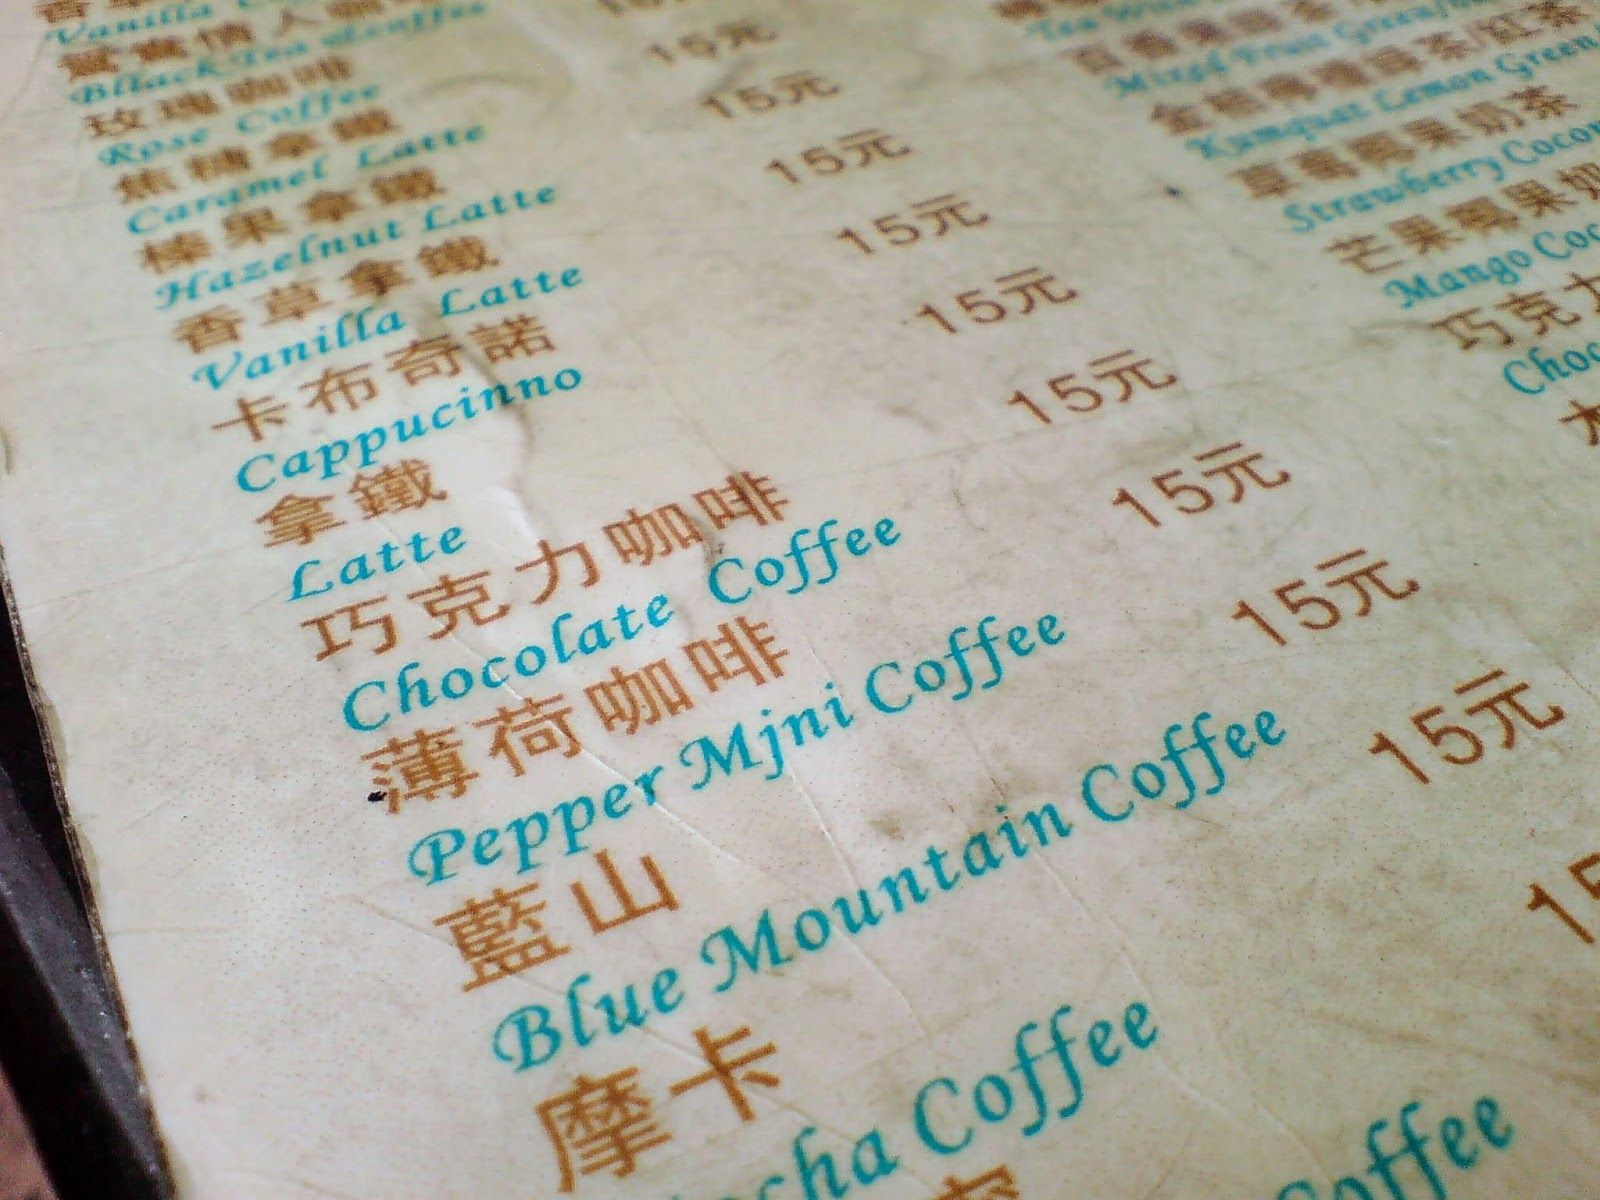 Vanilla
鴛鴦情人
Bllack Tea &coffee
玫瑰咖啡
Rose Coffee
焦糖拿鐵
Caramel Latte
榛果拿鐵
Hazelnut Latte
香草拿鐵
Vanilla Latte
卡布奇諾
Cappucinno
拿鐵
Latte
巧克力咖啡
Chocolate Coffee
薄荷咖啡
Pepper Mjni Coffee
藍山
Blue Mountain Coffee
摩卡
cha Coffee
Coffee
15元
15元
15元
15元
15元
15元
15元
15元
15元
15
Mixed Fruit Green
Kumquat Lemon Green
草莓椰果奶茶
Strawberry Cocon
芒果椰果奶
Mango Coc
巧克力
Choc